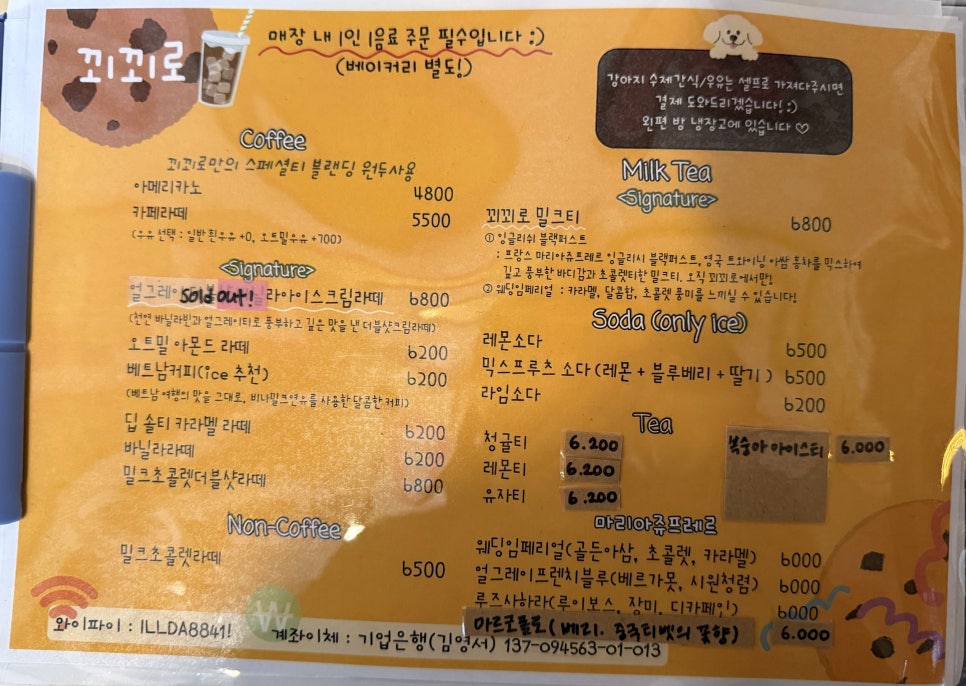 꾀꾀로
매장 내 1인 1음료 주문 필수입니다 :)
(베이커리 별도!)
강아지 수제간식/우유는 셀프로 가져다주시면
결제 도와드리겠습니다! :)
왼편 방 냉장고에 있습니다 ♡
Coffee
꾀꾀로만의 스페셜티 블랜딩 원두사용
아메리카노 4800
카페라떼 5500
(우유 선택 : 일반 흰우유 +0, 오트밀우유 +700)
<Signature>
얼그레이 Sold out! 라아이스크림라떼 6800
(천연 바닐라빈과 얼그레이티로 풍부하고 깊은 맛을 낸 더블샷크림라떼)
오트밀 아몬드 라떼 6200
베트남커피(ice 추천) 6200
(베트남 여행의 맛을 그대로, 비나밀크연유를 사용한 달콤한 커피)
딥 솔티 카라멜 라떼 6200
바닐라라떼 6200
밀크초콜렛더블샷라떼 6800
Non-Coffee
밀크초콜렛라떼 6500
Milk Tea
<Signature>
꾀꾀로 밀크티 6800
① 잉글리쉬 블랙퍼스트
: 프랑스 마리아쥬프레르 잉글리시 블랙퍼스트, 영국 트와이닝 아쌈 홍차를 믹스하여
깊고 풍부한 바디감과 초콜렛티한 밀크티. 오직 꾀꾀로에서만!
② 웨딩임페리얼 : 카라멜, 달콤함, 초콜렛 풍미를 느끼실 수 있습니다!
Soda (only ice)
레몬소다 6500
믹스프루츠 소다 (레몬 + 블루베리 + 딸기 ) 6500
라임소다 6200
Tea
청귤티 6.200 복숭아 아이스티 6.000
레몬티 6.200
유자티 6.200
마리아쥬프레르
웨딩임페리얼(골든아삼, 초콜렛, 카라멜) 6000
얼그레이프렌치블루(베르가못, 시원청렴) 6000
루즈사하라(루이보스, 장미, 디카페인) 6000
마르코폴로 (베리. 중국티벳의 꽃향) 6.000
와이파이 : ILLDA8841!
W
계좌이체 : 기업은행(김영서) 137-094563-01-013